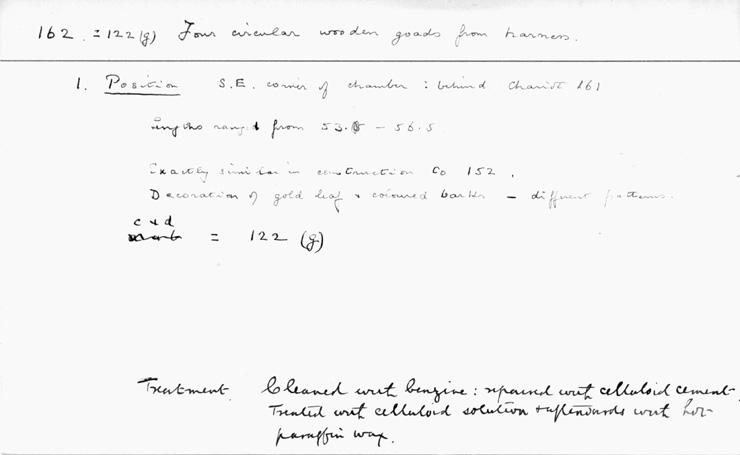 162. = 122 (g) Four circular wooden goads from harness.
1. Position S.E. corner of chamber : behind Chariot 161
Lengths ranged from 53.5 – 56.5
Exactly similar in construction to 152.
Decoration of gold leaf & coloured barks – different patterns.
c & d
= 122 (g)
Treatment. Cleaned with benzine : repaired with celluloid cement.
Treated with celluloid solution & afterwards with hot
paraffin wax.